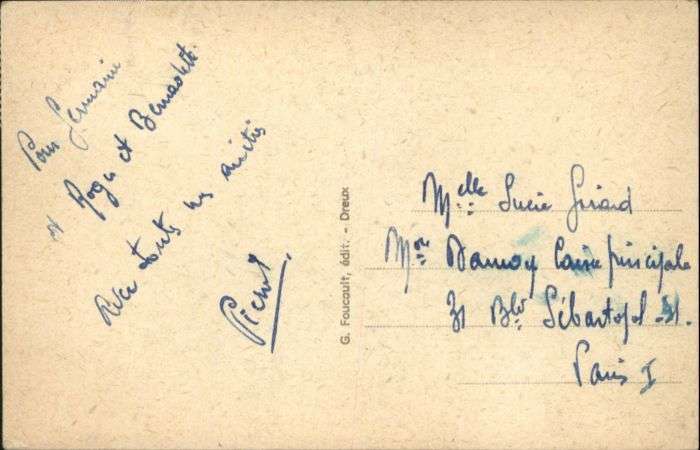 Pour Germaine
et Roger et Bernadette
Avec toutes mes amitiés
Pichot
G. Foucault, édit. - Dreux
Melle Lucie Girard
Mon Damoy Caisse principale
31 Bld Sébastopol - 31.
Paris I